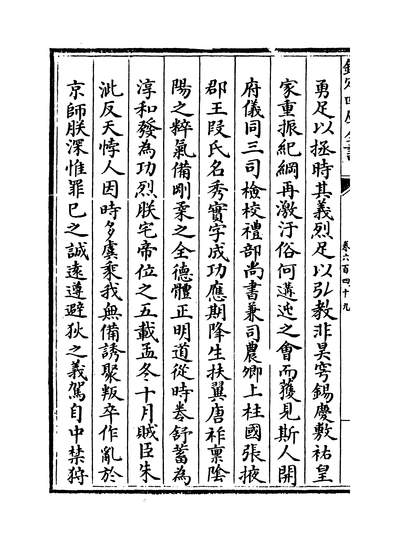 欽定四庫全書
卷六百四十九
勇足以拯時其義烈足以弘教非昊穹錫慶敷祐皇
家重振紀綱再激汙俗何遘迍之會而獲見斯人開
府儀同三司檢校禮部尚書兼司農卿上柱國張掖
郡王段氏名秀實字成功應期降生扶翼唐祚稟陰
陽之粹氣備剛柔之全德體正明道從時卷舒蓄為
淳和發為功烈朕宅帝位之五載孟冬十月賊臣朱
泚反天悖人因時多虞乘我無備誘聚叛卒作亂於
京師朕深惟罪已之誠遠遵避狄之義駕自中禁狩